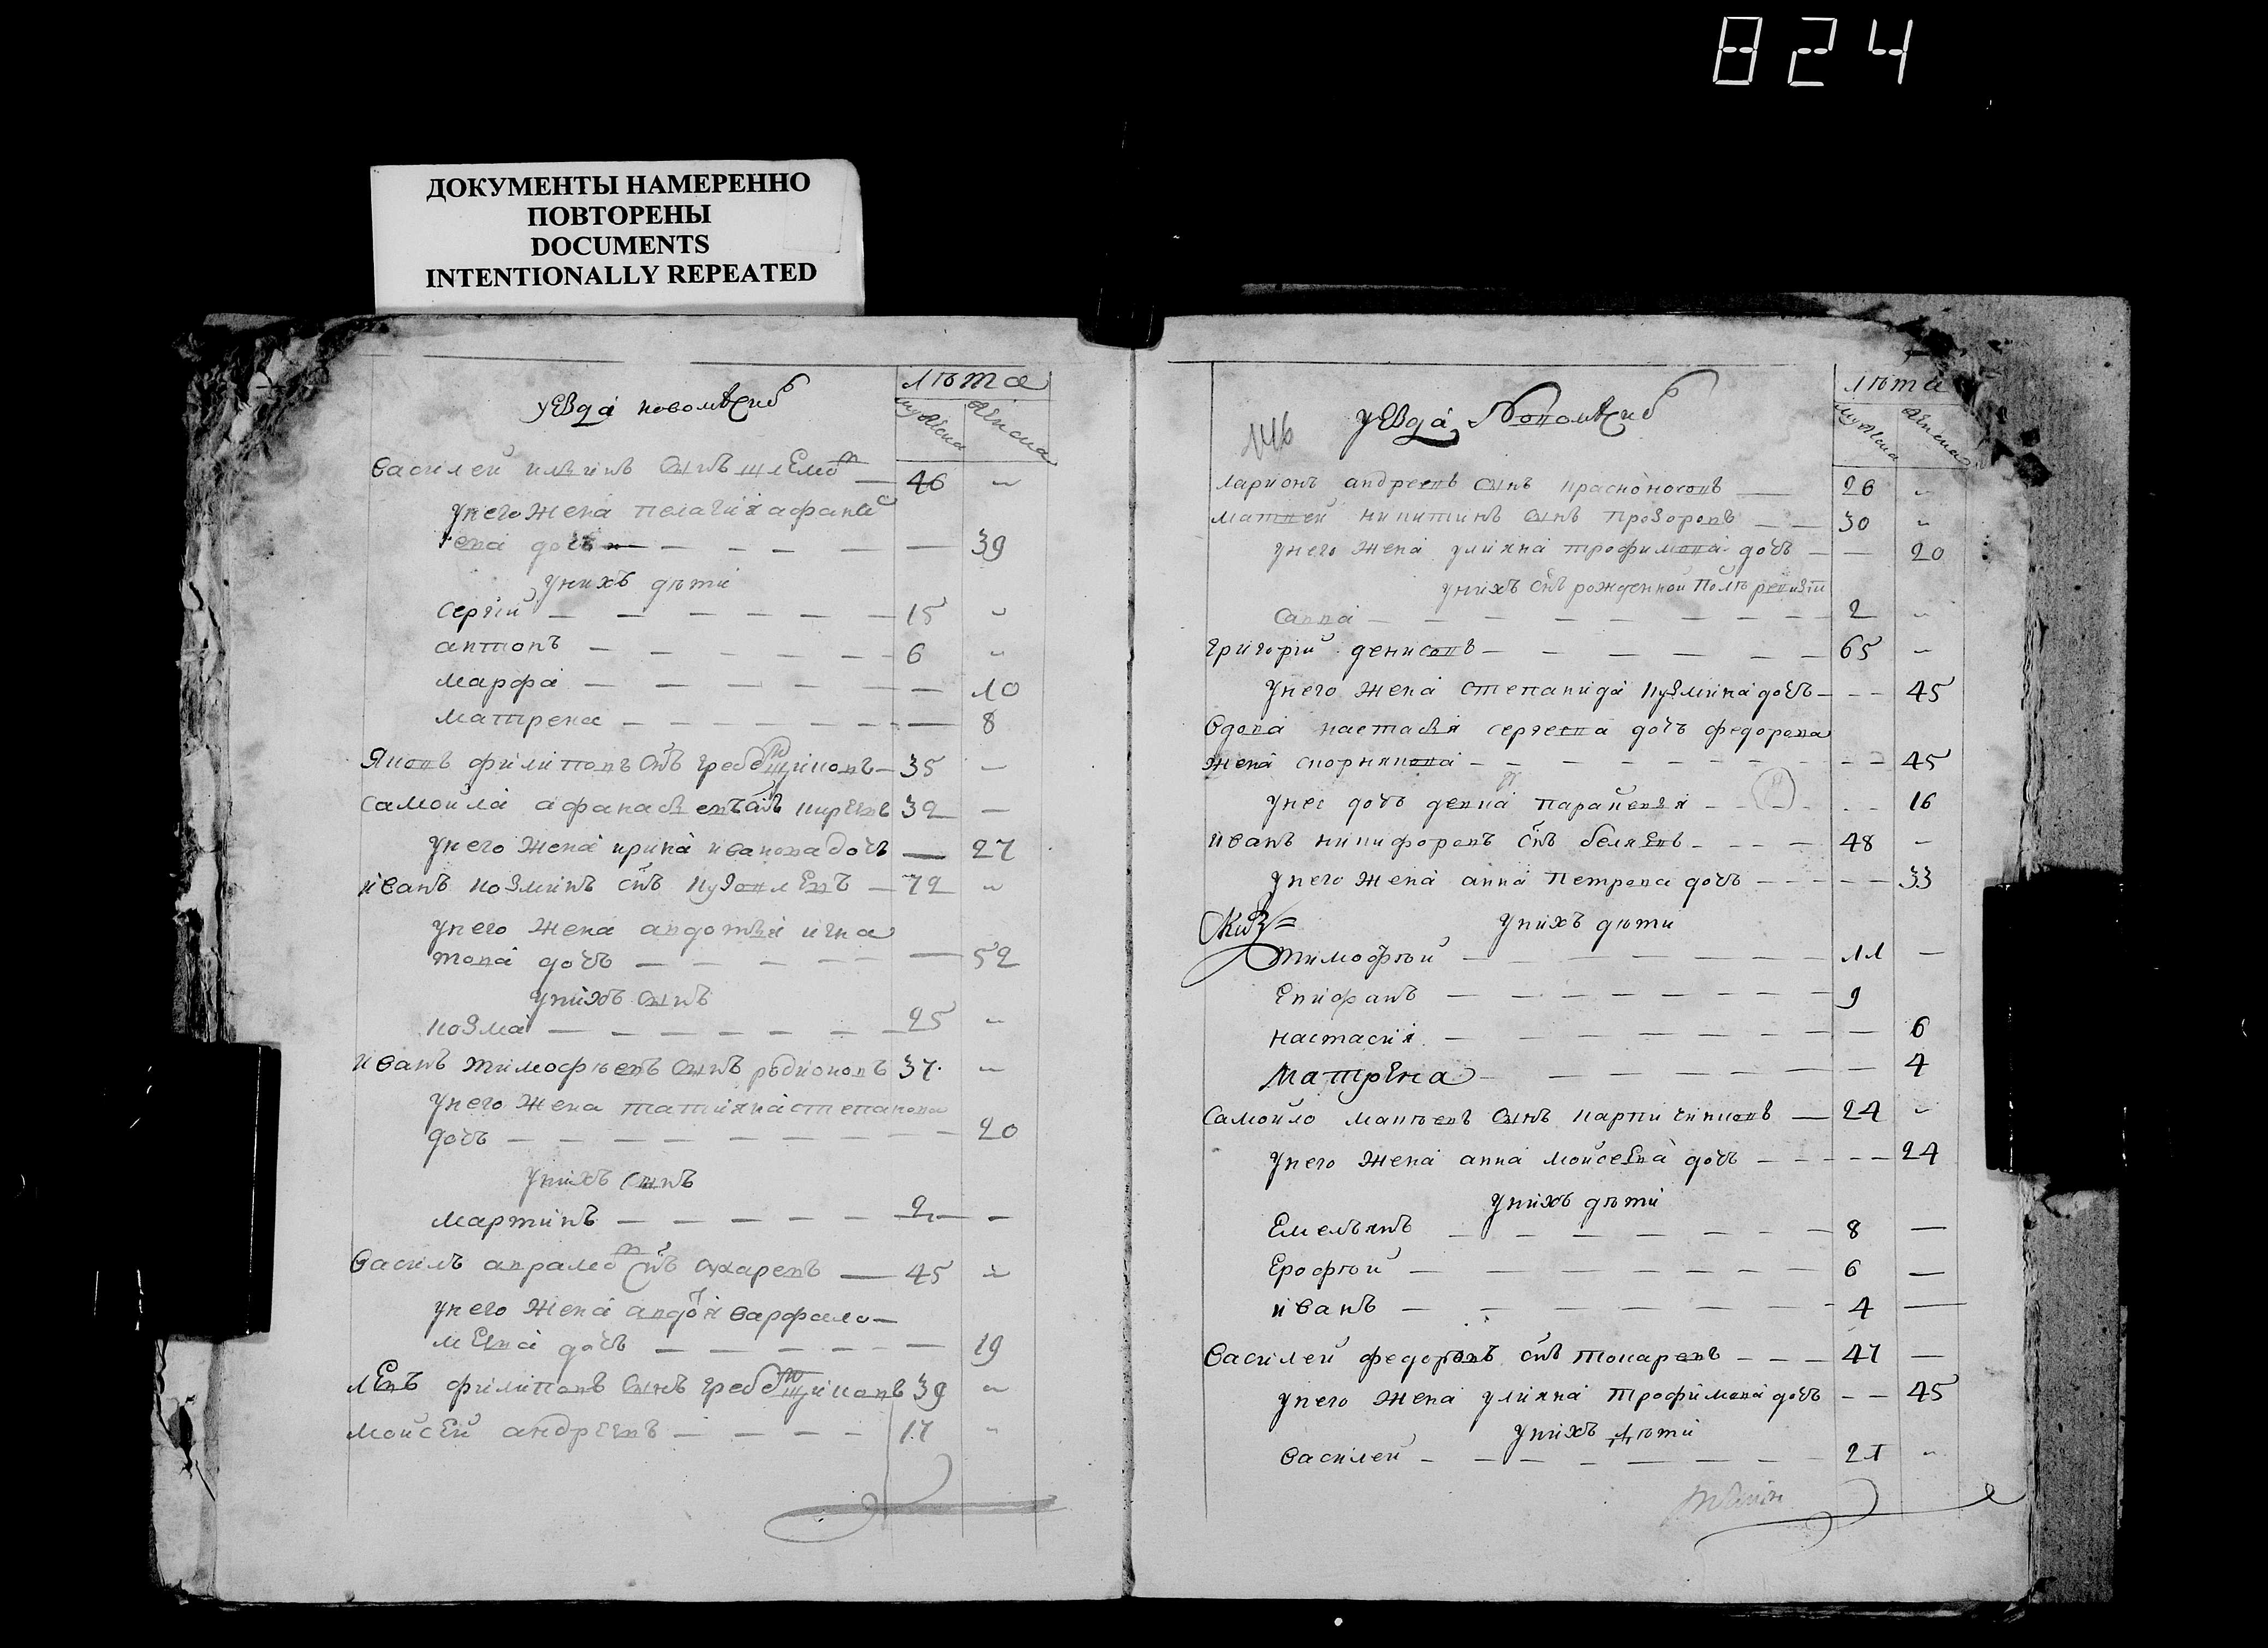 824
ДОКУМЕНТЫ НАМЕРЕННО
ПОВТОРЕНЫ
DOCUMENTS
INTENTIONALLY REPEATED
лѣта
уезда
мужеска женска
василей сынъ 46
унего жена пелагия афанас
ева дочь 39
унихъ дѣти
сергий 15
антонъ 6
марфа 10
матрена 8
яковъ филиповъ снъ гребенщиковъ 35
самойла афанасевъ снъ 32
унего жена ирина иванова дочь 27
иванъ козминъ снъ 72
унего жена авдотья игна
това дочь 52
унихъ сынъ
козма 25
иванъ тимофѣевъ сынъ родионовъ 37
унего жена татияна степанова
дочь 20
унихъ сынъ
мартинъ 2
василъ аврамов снъ сухаревъ 45
унего жена авдотя варфало
меева дочь 19
левъ филиповъ сынъ гребенщиковъ 39
моисей андреевъ 17
лѣта
уезда
мужеска женска
ларионъ андреевъ сынъ красноносовъ 26
матвей никитинъ снъ прозоровъ 30
унего жена улияна трофимова дочь 20
унихъ снъ рожденной послѣ ревизи
савва 2
григорий денисовъ 65
унего жена степанида кузмина дочь 45
вдова настасия сергеева дочь федорова
жена 45
унее дочь девка парасковя 16
иванъ никифоровъ снъ беляевъ 48
унего жена анна петрова дочь 33
унихъ дѣти
тимофѣй 11
епифанъ 9
настасия 6
матрена 4
самойло матвѣевъ сынъ 24
унего жена анна моисеева дочь 24
унихъ дѣти
емелъянъ 8
ерофѣй 6
иванъ 4
василей федоровъ снъ токаревъ 47
унего жена улияна трофимова дочь 45
унихъ дѣти
василей 21